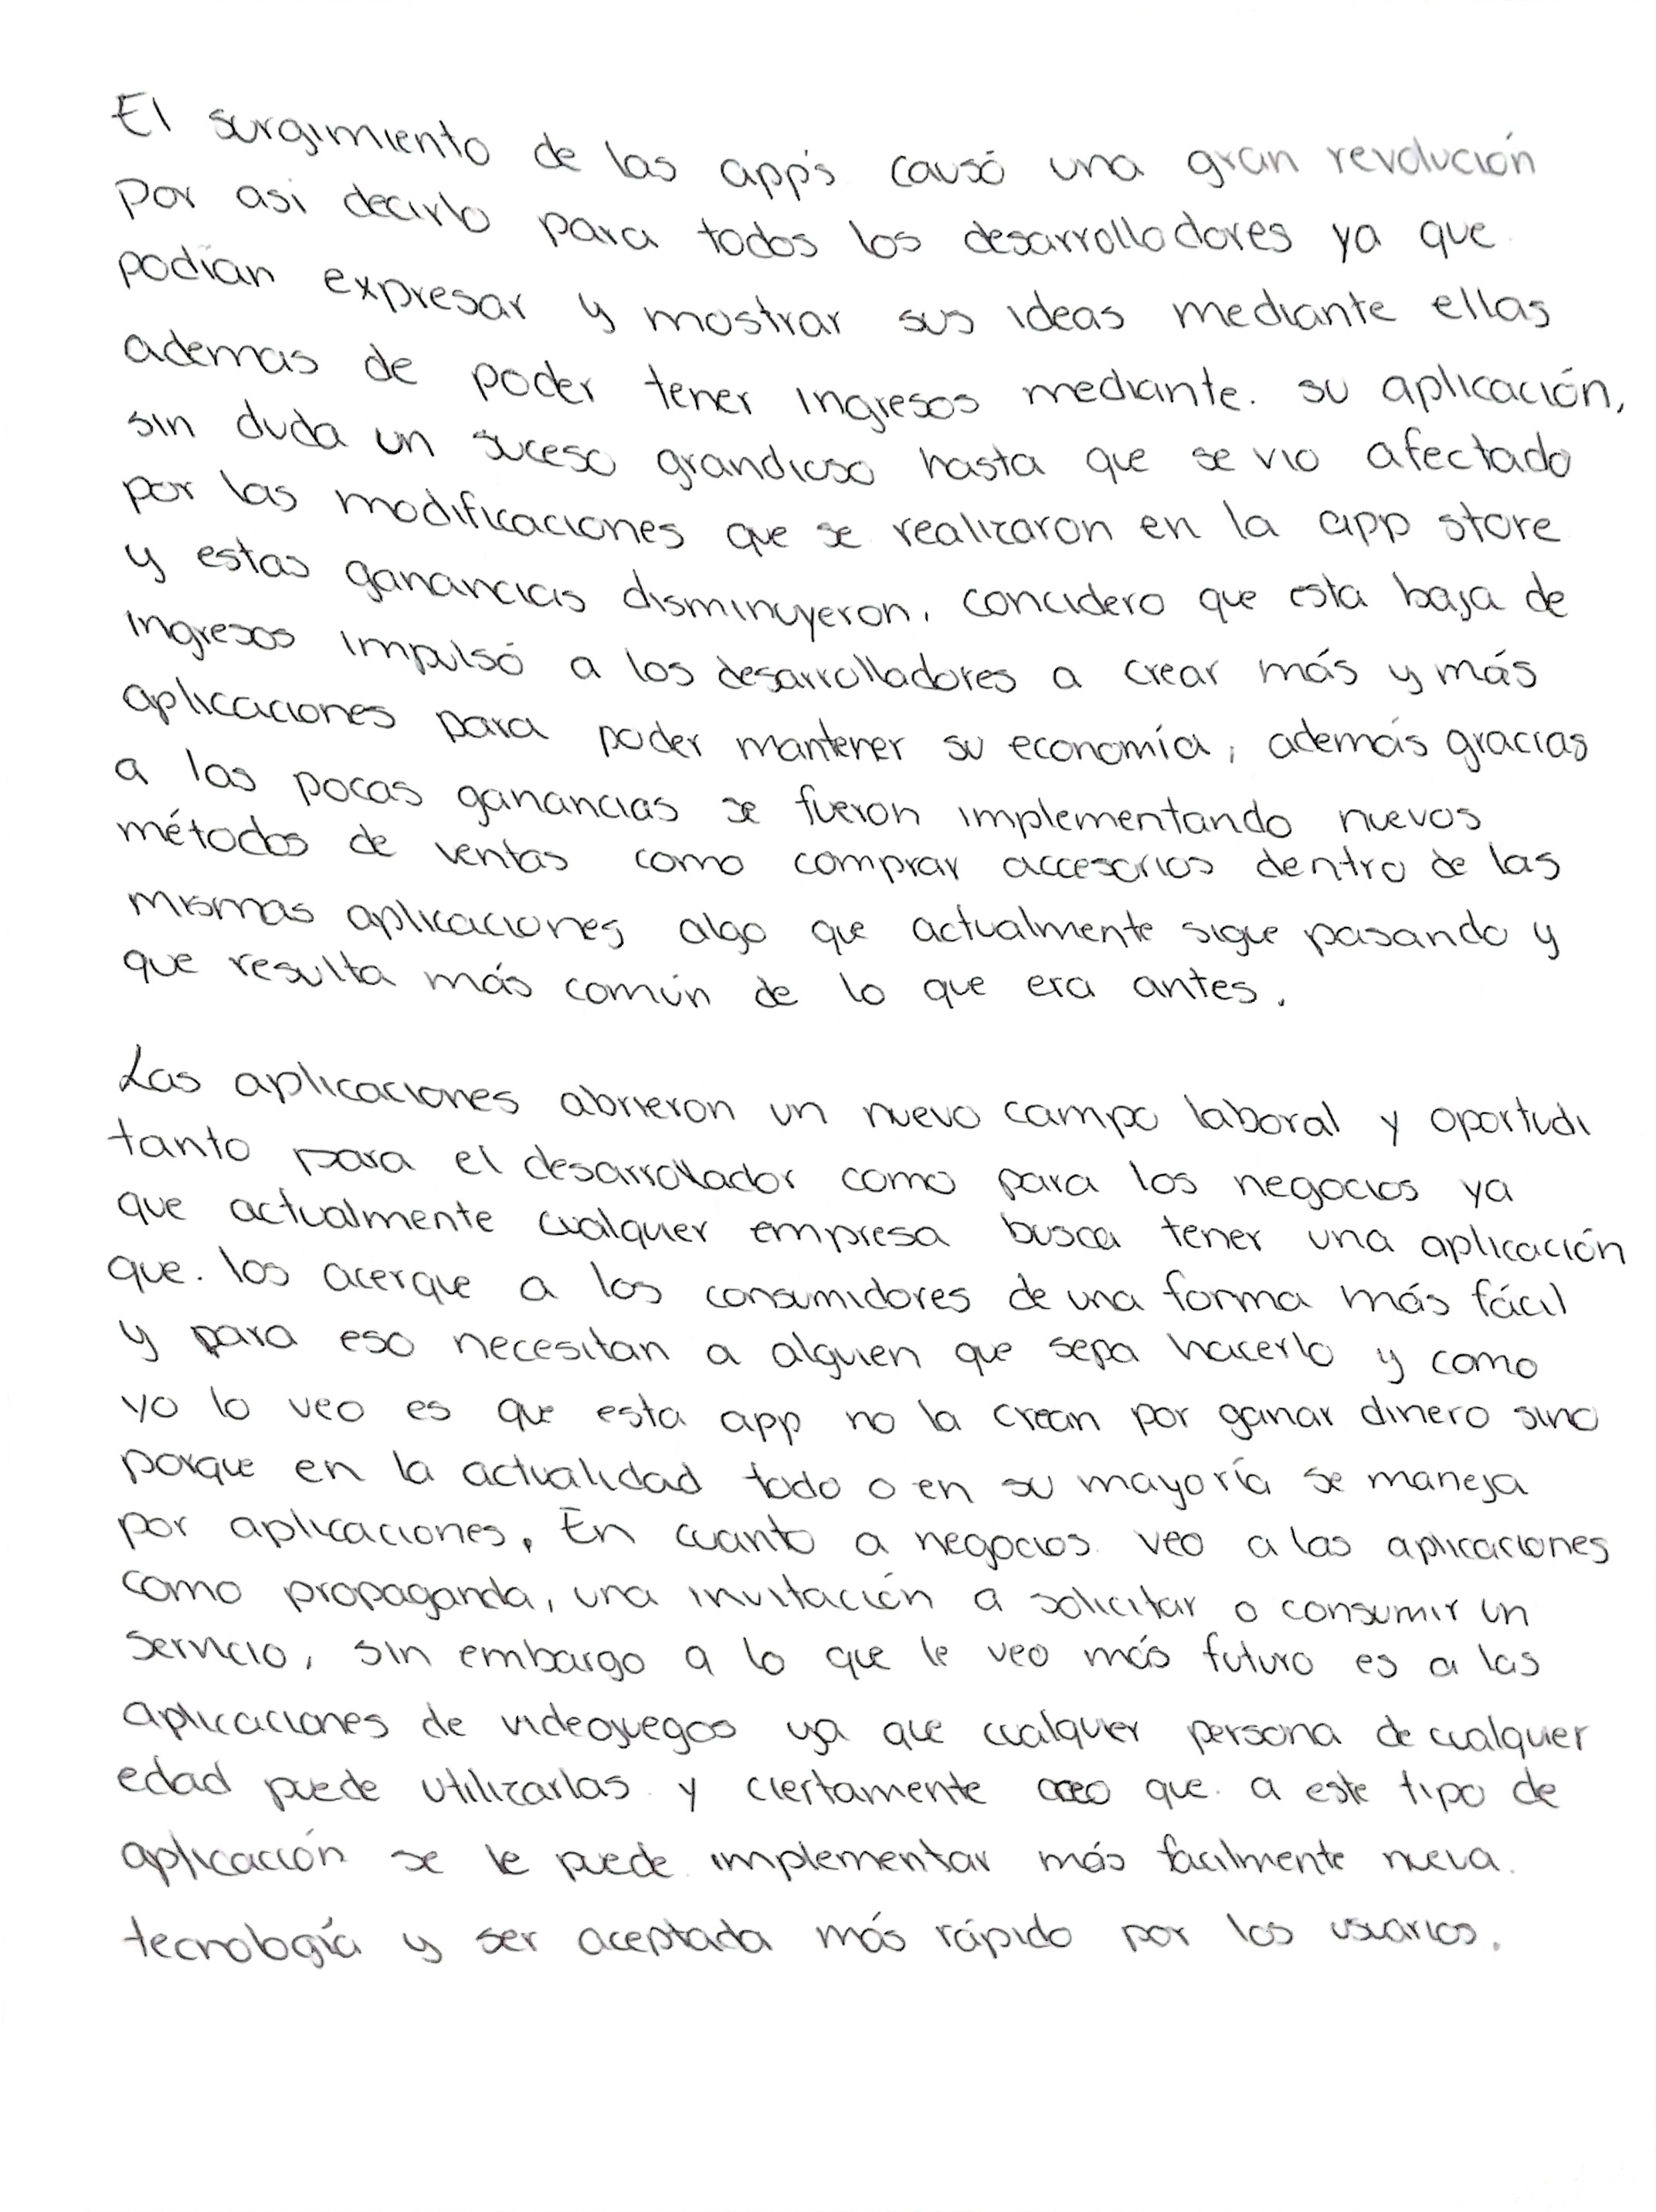 El surgimiento de las app's causó una gran revolución
por asi decirlo para todos los desarrolladores ya que
podían expresar y mostrar sus ideas mediante ellas
ademas de poder tener ingresos mediante. su aplicación,
sin duda un suceso grandioso hasta que se vio afectado
por las modificaciones que se realizaron en la app store
y estas ganancias disminuyeron, concidero que esta baja de
ingresos impulsó a los desarrolladores a crear más y más
aplicaciones para poder mantener su economía, además gracias
a las pocas ganancias se fueron implementando nuevos
métodos de ventas como comprar accesorios dentro de las
mismas aplicaciones algo que actualmente sigue pasando y
que resulta más común de lo que era antes.
Las aplicaciones abrieron un nuevo campo laboral y oportudi
tanto para el desarrollador como para los negocios ya
que actualmente cualquier empresa busca tener una aplicación
que. los acerque a los consumidores de una forma más fácil
y para eso necesitan a alguien que sepa hacerlo y como
yo lo veo es que esta app no la crean por ganar dinero sino
porque en la actualidad todo o en su mayoría se maneja
por aplicaciones. En cuanto a negocios veo a las aplicaciones
como propaganda, una invitación a solicitar o consumir un
servicio, sin embargo a lo que le veo más futuro es a las
aplicaciones de videojuegos ya que cualquier persona de cualquier
edad puede utilizarlas y ciertamente creo que a este tipo de
aplicación se le puede implementar más facilmente nueva
tecnología y ser aceptada más rápido por los usuarios.